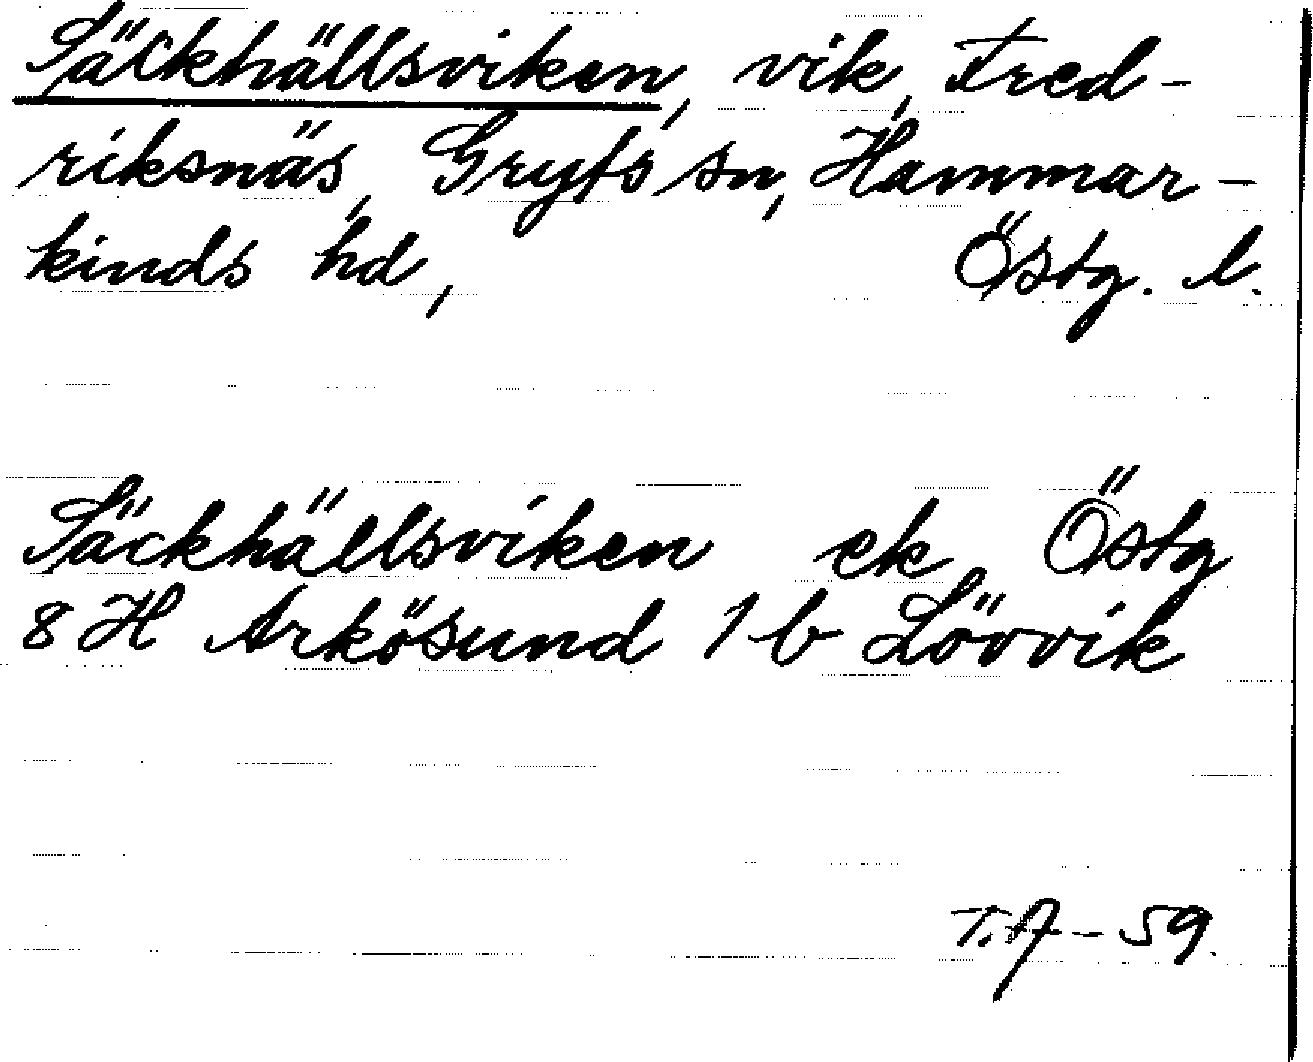 Säckhällsviken, vik, Fred-
riksnäs, Gryts sn, Hammar-
kinds hd, Östg. l.
Säckhällsviken ek. Östg
8 H Arkösund 1 b Lövvik
T.A-59.